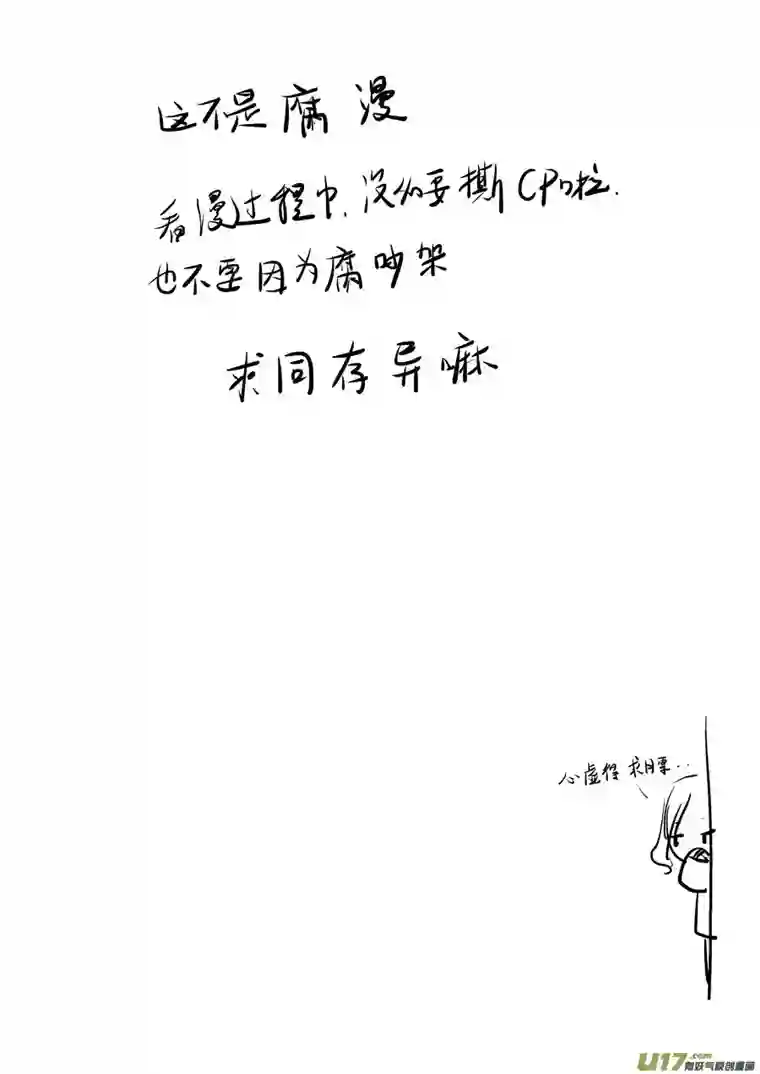 这不是腐漫
看漫过程中,没必要撕CP啦.
也不要因为腐吵架
求同存异嘛
心虚得求月票..
U17.com
有妖气原创漫画